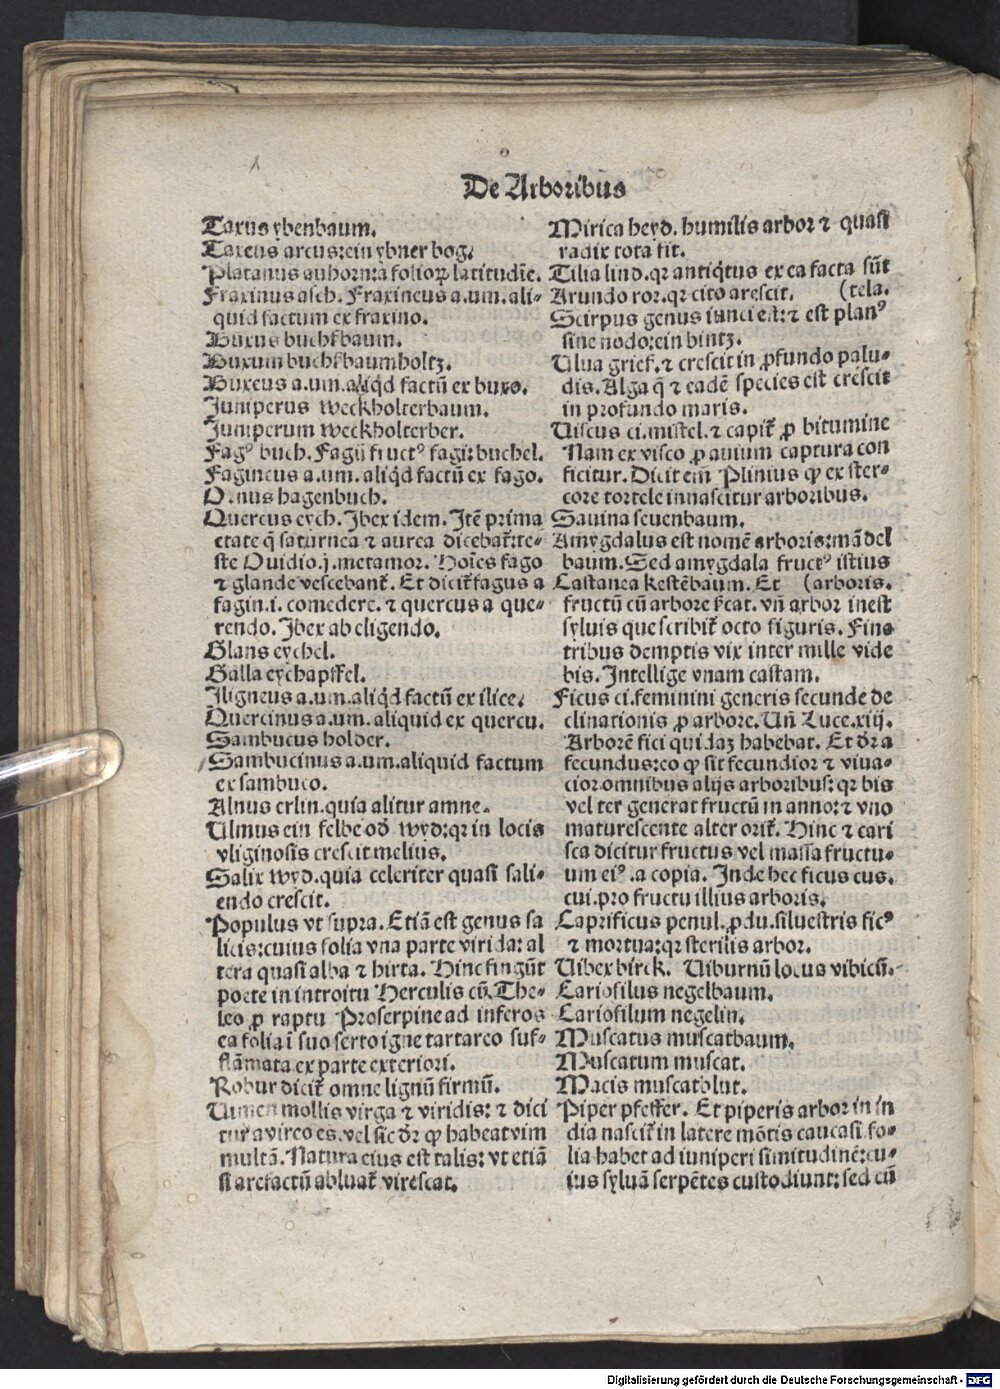 De Arboribus
Taxus ybenbaum.
Taxeus arcus: ein ybner bog.
Platanus anhorn: a folioꝝ latitudīe.
Fraxinus asch. Fraxineus a.um. ali-
quid factum ex fraxino.
Buxus buchßbaum.
Buxum buchßbaumholtz.
Buxeus a.um. aliqd̓ factū ex buxo.
Juniperus weckholterbaum.
Juniperum weckholterber.
Fagꝰ buch. Fagū fructꝰ fagi: buchel.
Fagineus a.um. aliqd̓ factū ex fago.
Ornus hagenbuch.
Quercus eych. Ibex idem. Itē prima
etate q̄ saturnea ⁊ aurea dicebat̄: te-
ste Ouidio.j. metamor. Hoīes fago
⁊ glande vescebant̄. Et dicit̄ fagus a
fagin.i. comedere. ⁊ quercus a que-
rendo. Ibex ab eligendo.
Glans eychel.
Galla eychapffel.
Iligneus a.um. aliqd̓ factū ex ilice.
Quercinus a.um. aliquid ex quercu.
Sambucus holder.
Sambucinus a.um. aliquid factum
ex sambuco.
Alnus erlin. quia alitur amne.
Ulmus ein felbe od̓ wyd: qꝛ in locis
vliginosis crescit melius.
Salix wyd. quia celeriter quasi sali-
endo crescit.
Populus vt supra. Etiā est genus sa
licis: cuius folia vna parte virida: al
tera quasi alba ⁊ hirta. Hinc fingūt
poete in introitu Herculis cū The-
seo ꝓ raptu Proserpine ad inferos
ea folia ī suo serto igne tartareo suf-
flāmata ex parte exteriori.
Robur dicit̄ omne lignū firmū.
Uimen mollis virga ⁊ viridis: ⁊ dici
tur a vireo es. vel sic dr̄ ꝙ habeat vim
multā. Natura eius est talis: vt etiā
si arefactū abluat̄ virescat.
Mirica heyd. humilis arbor ⁊ quasi
radix tota sit.
Tilia lind. qꝛ antiqtus ex ea facta sūt
Arundo ror. qꝛ cito arescit. (tela.
Scirpus genus iunci est: ⁊ est planꝰ
sine nodo: ein bintz.
Ulua grieß. ⁊ crescit in ꝓfundo palu-
dis. Alga q̄ ⁊ eadē species est crescit
in profundo maris.
Uiscus ci. mistel. ⁊ capit̄ ꝓ bitumine
Nam ex visco ꝓ auium captura con
ficitur. Dicit em̄ Plinius ꝙ ex ster-
core tortele innascitur arboribus.
Sauina seuenbaum.
Amygdalus est nomē arboris: mādel
baum. Sed amygdala fructꝰ istius
Castanea kestēbaum. Et (arboris.
fructū cū arbore s̄cat. vn̄ arbor inest
syluis que scribit̄ octo figuris. Fine
tribus demptis vix inter mille vide
bis. Intellige vnam castam.
Ficus ci. feminini generis secunde de
clinationis ꝓ arbore. Un̄ Luce.xiij.
Arborē fici quidaꝫ habebat. Et dr̄ a
fecundus: eo ꝙ sit fecundior ⁊ viua-
cior omnibus alijs arboribus: qꝛ bis
vel ter generat fructū in anno: ⁊ vno
maturescente alter orit̄. Hinc ⁊ cari
sca dicitur fructus vel massa fructu-
um eiꝰ .a copia. Inde hec ficus cus.
cui. pro fructu illius arboris.
Caprificus penul. ꝓdu. siluestris ficꝰ
⁊ mortua: qꝛ sterilis arbor.
Uibex birck. Uiburnū locus vibicū.
Cariofilus negelbaum.
Cariofilum negelin.
Muscatus muscatbaum.
Muscatum muscat.
Macis muscatblut.
Piper pfeffer. Et piperis arbor in in
dia nascit̄ in latere mōtis caucasi. fo-
lia habet ad iuniperi similitudinē: cu-
ius syluā serpētes custodiunt: sed cū
Digitalisierung gefördert durch die Deutsche Forschungsgemeinschaft - DFG